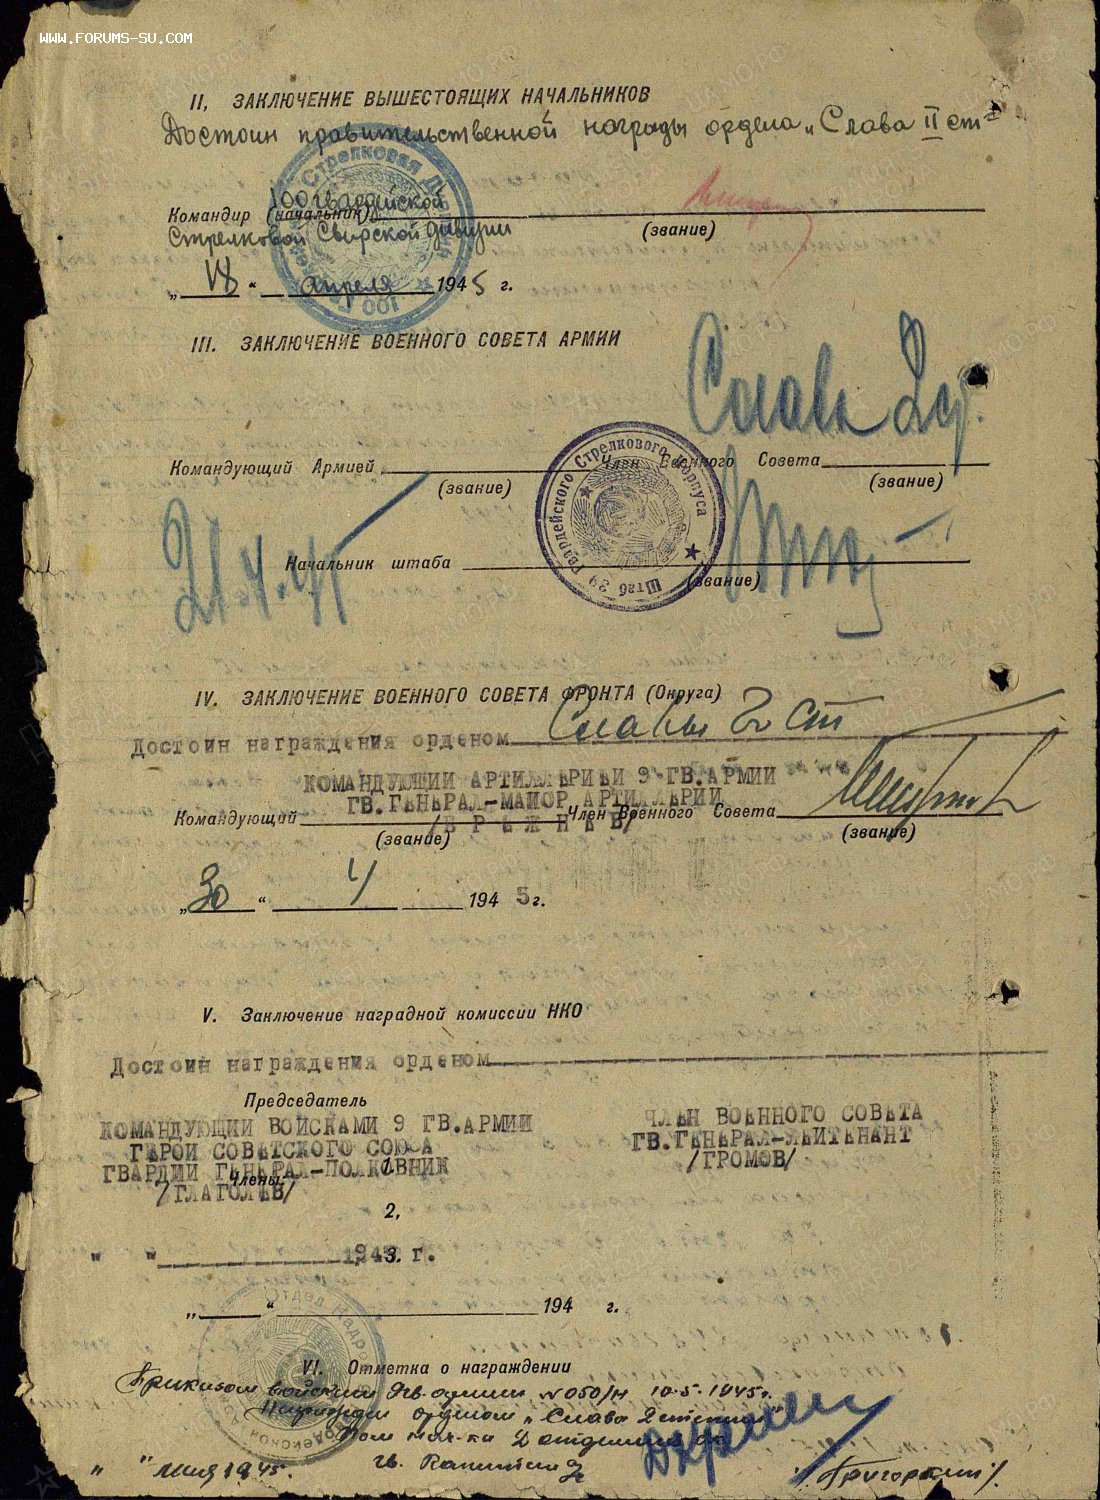 WWW.FORUMS-SU.COM
II, ЗАКЛЮЧЕНИЕ ВЫШЕСТОЯЩИХ НАЧАЛЬНИКОВ
Достоин правительственной награды ордена „Слава II ст"
100 гвардейской
Командир (начальник)
Стрелковой Свирской дивизии
(звание)
„18“ апреля 1945 г.
III. ЗАКЛЮЧЕНИЕ ВОЕННОГО СОВЕТА АРМИИ
Слава 2 ст.
Командующий Армией Член Военного Совета
(звание) (звание)
21.4.45
Начальник штаба
(звание)
Штаб 39 Гвардейского Стрелкового Корпуса
IV. ЗАКЛЮЧЕНИЕ ВОЕННОГО СОВЕТА ФРОНТА (Округа)
Достоин награждения орденом Славы 2 ст
КОМАНДУЮЩИЙ АРТИЛЛЕРИЕЙ 9 ГВ.АРМИИ
ГВ.ГЕНЕРАЛ-МАЙОР АРТИЛЛЕРИИ
Командующий Член Военного Совета
/БРЕЖНЕВ/
(звание) (звание)
„30“ 4 1945г.
V. Заключение наградной комиссии НКО
Достоин награждения орденом
Председатель
КОМАНДУЮЩИЙ ВОЙСКАМИ 9 ГВ.АРМИИ ЧЛЕН ВОЕННОГО СОВЕТА
ГЕРОЙ СОВЕТСКОГО СОЮЗА ГВ.ГЕНЕРАЛ-ЛЕЙТЕНАНТ
ГВАРДИИ ГЕНЕРАЛ-ПОЛКОВНИК /ГРОМОВ/
Члены: 1.
/ГЛАГОЛЕВ/
2,
" " 194 г.
„ “ 194 г.
VI. Отметка о награждении
Приказом войскам 9 гв. армии №050/н 10.5.1945г.
Награжден орденом „Слава 2 степени"
Пом нач-ка 2 отделения
" " мая 1945г. гв. Капитан
/Григоркин/